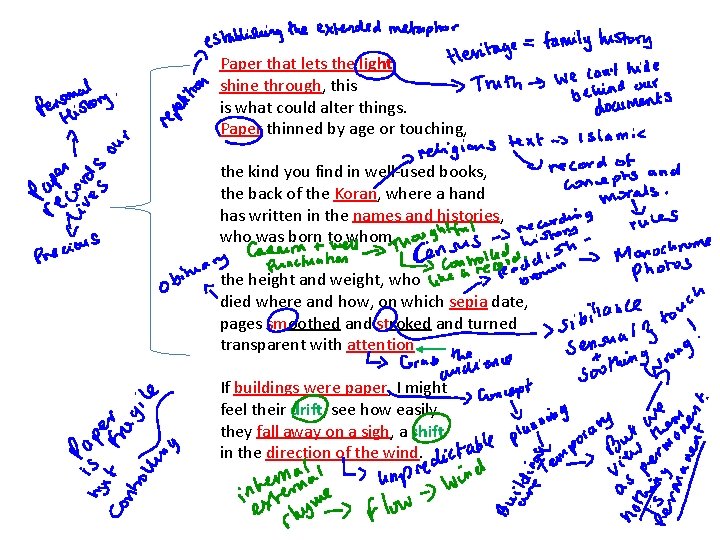 establishing the extended metaphor
Heritage = family history
Paper that lets the light
shine through, this
is what could alter things.
Paper thinned by age or touching,
repetition
Truth → we can't hide
behind our
documents
Personal
History.
Paper
records our
lives
Precious
religious text → Islamic
the kind you find in well-used books,
the back of the Koran, where a hand
has written in the names and histories,
who was born to whom,
record of
concepts and
morals.
rules
Thoughtful
Census → recording
history
Caesura + well
Punctuation
controlled
like a record
reddish -
brown
Monochrome
photos
obituary
the height and weight, who
died where and how, on which sepia date,
pages smoothed and stroked and turned
transparent with attention.
sibilance
sensual } touch
+
soothing
Grab the
audience
If buildings were paper, I might
feel their drift, see how easily
they fall away on a sigh, a shift
in the direction of the wind.
Concept
planning
Buildings
are Temporary
But we
view them
as permanent.
nothing
is
permanent
wrong!
unpredictable
wind
internal
external
rhyme → flow →
Paper
is fragile
controlling